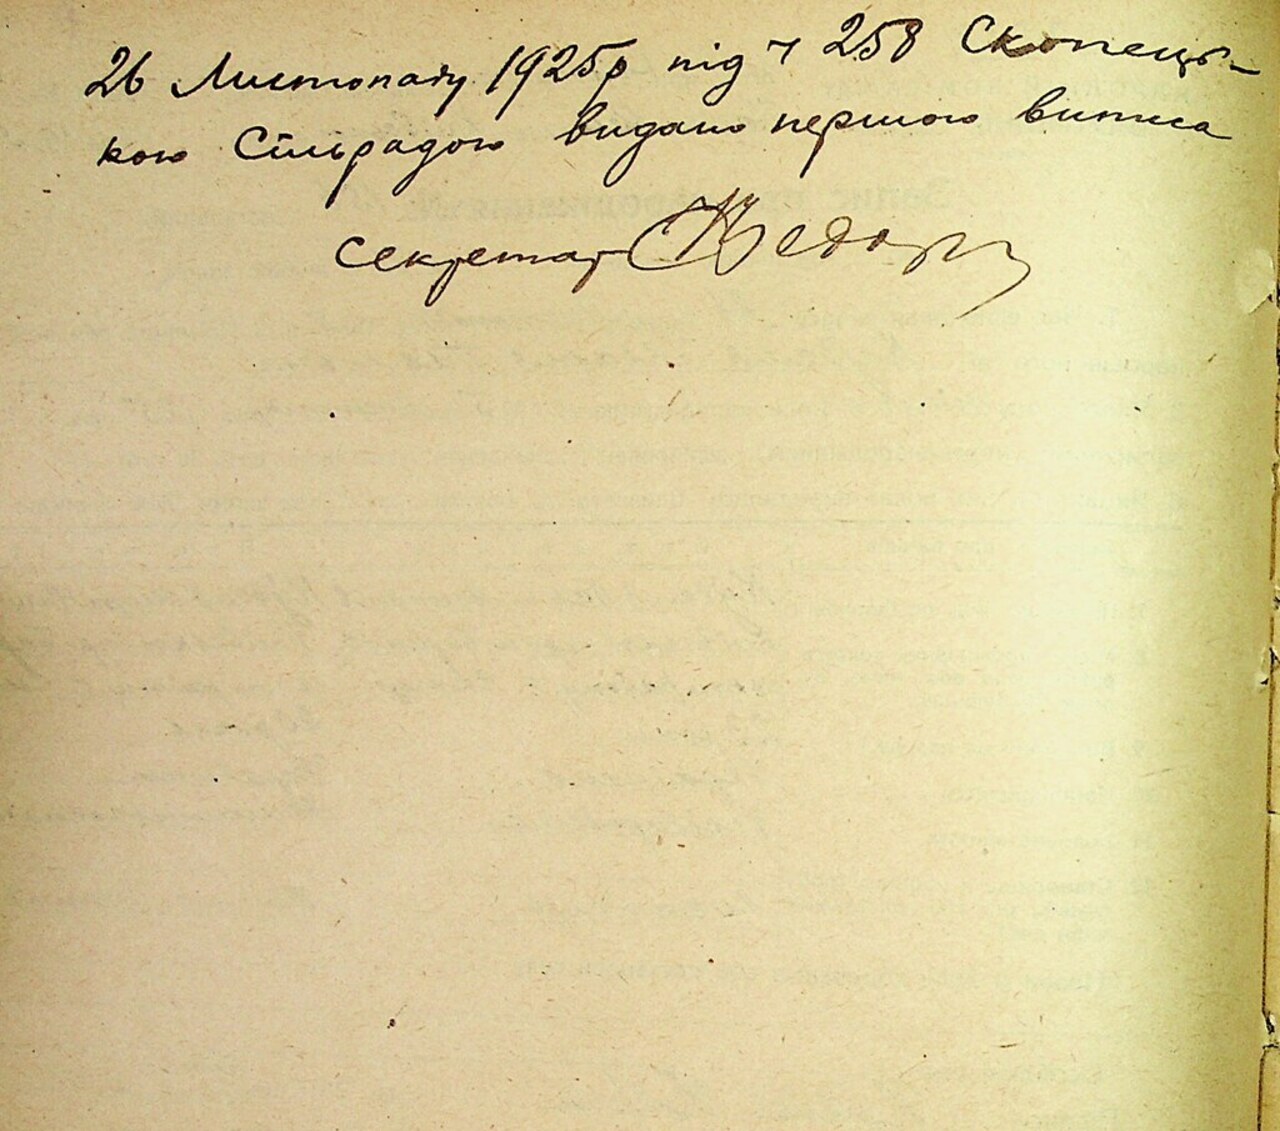 26 Листопаду 1925р під ч 258 Скопець-
кою Сільрадою видано першою виписа
Секретар